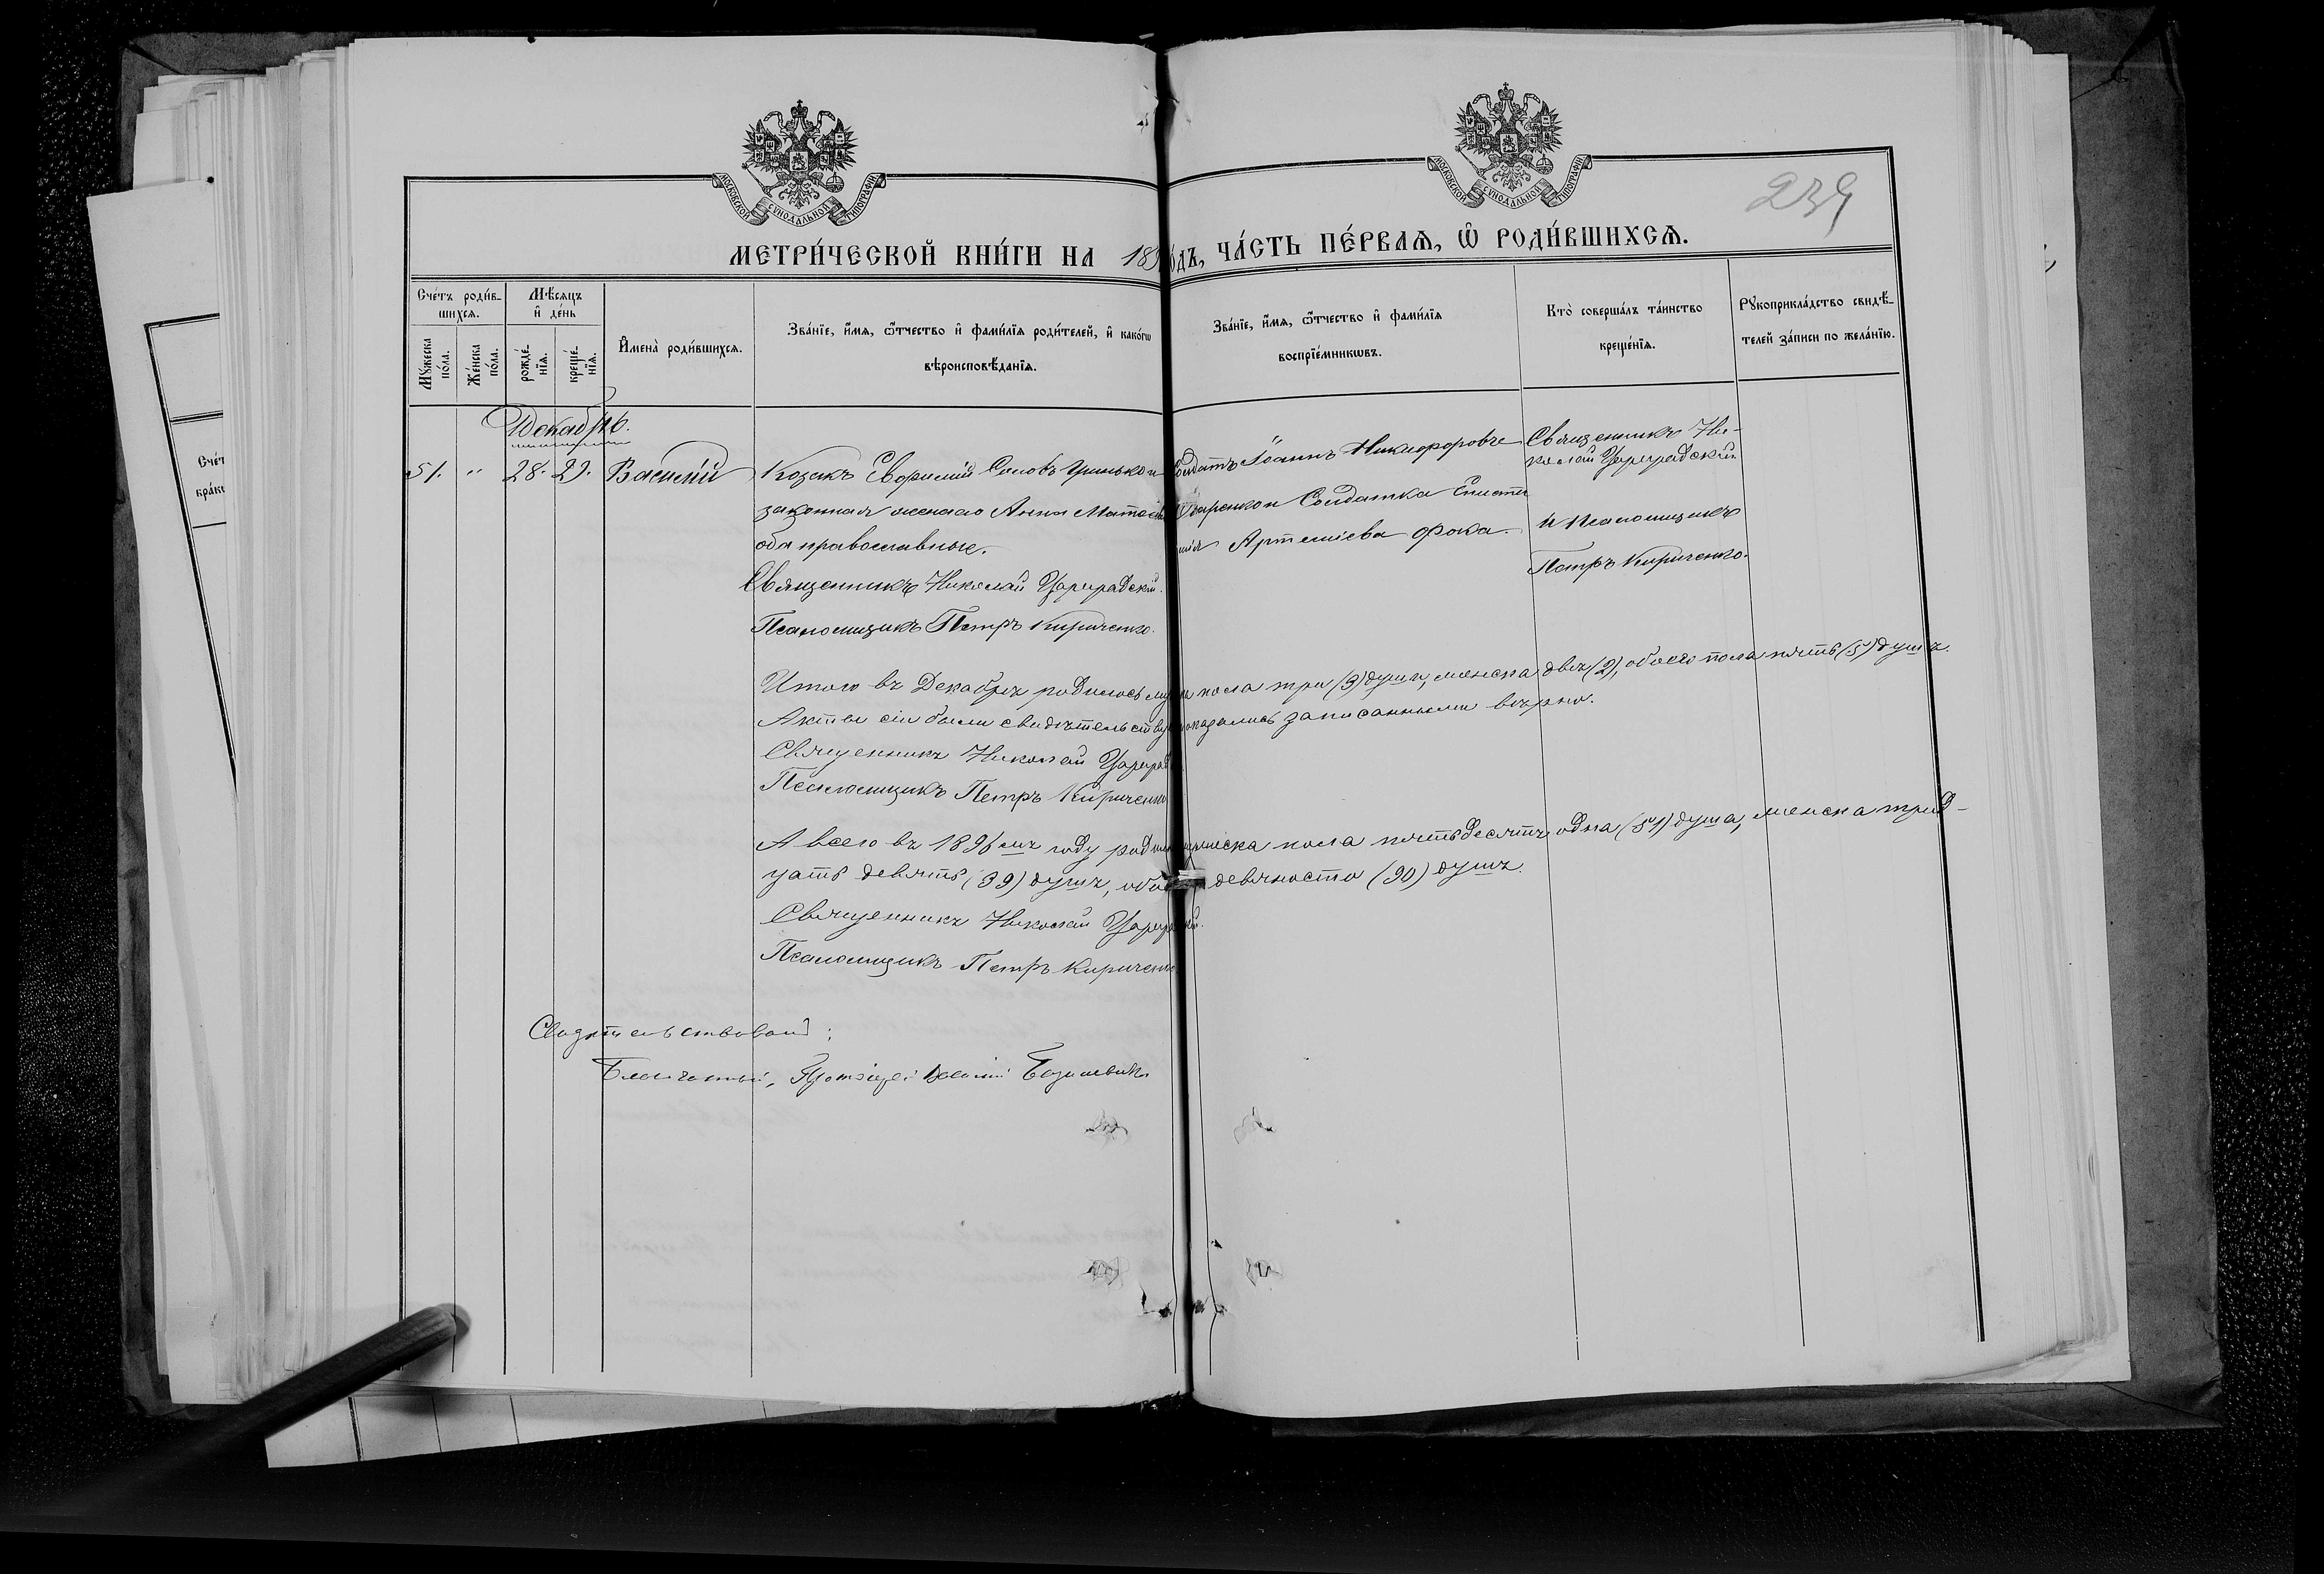 МОСКОВСКОЙ СѴНОДАЛЬНОЙ ТИПОГРАФІИ
МОСКОВСКОЙ СѴНОДАЛЬНОЙ ТИПОГРАФІИ
239
МЕТРИ́ЧЕСКОЙ КНИ́ГИ НА 189 ГО́ДЪ, ЧА́СТЬ ПЕ́РВАѦ, Ѡ҆ РОДИ́ВШИХСѦ.
Сче́тъ роди́в-
шихсѧ.
Мꙋ́жеска по́ла.
Же́нска по́ла.
Мѣ́сѧцъ
и҆ де́нь
рожде́-
нїѧ.
креще́-
нїѧ.
И҆мена̀ роди́вшихсѧ.
Зва́нїе, и҆́мѧ, ѻ҆́тчество и҆ фами́лїѧ роди́телей, и҆ како́гѡ
вѣроисповѣ́данїѧ.
Зва́нїе, и҆́мѧ, ѻ҆́тчество и҆ фами́лїѧ
воспрїе́мникѡвъ.
Кто̀ соверша́лъ та́инство
креще́нїѧ.
Рꙋкоприкла́дство свидѣ́-
телей за́писи по жела́нїю.
Сче́т
бра́ко
Декабрь.
51. " 28. 29. Василій
Козакъ Евфимій
законная жена его Анна
оба православные.
Священникъ Николай Цареградскій.
Псаломщикъ Петръ Кириченко.
Солдатъ Іоаннъ Никифоровъ
Солдатка
Артеміева Фока.
Священникъ Ни-
колай Цареградскій
и Псаломщикъ
Петръ Кириченко.
Итого въ Декабрѣ родилось муж пола три (3) души, женска двѣ (2), обоего пола пять (5) душъ.
Акты сіи были свидѣтельству оказались записанными вѣрно.
Священникъ Николай Цареград
Псаломщикъ Петръ Кириченко
А всего въ 1896мъ году родилось мужеска пола пятьдесятъ одна (51) душа, женска трид-
цать девять (39) душъ, обоего девяносто (90) душъ.
Священникъ Николай Цареградскій.
Псаломщикъ Петръ Кириченко.
Свидѣтельствовалъ:
Благочинный, Протоіерей Василій